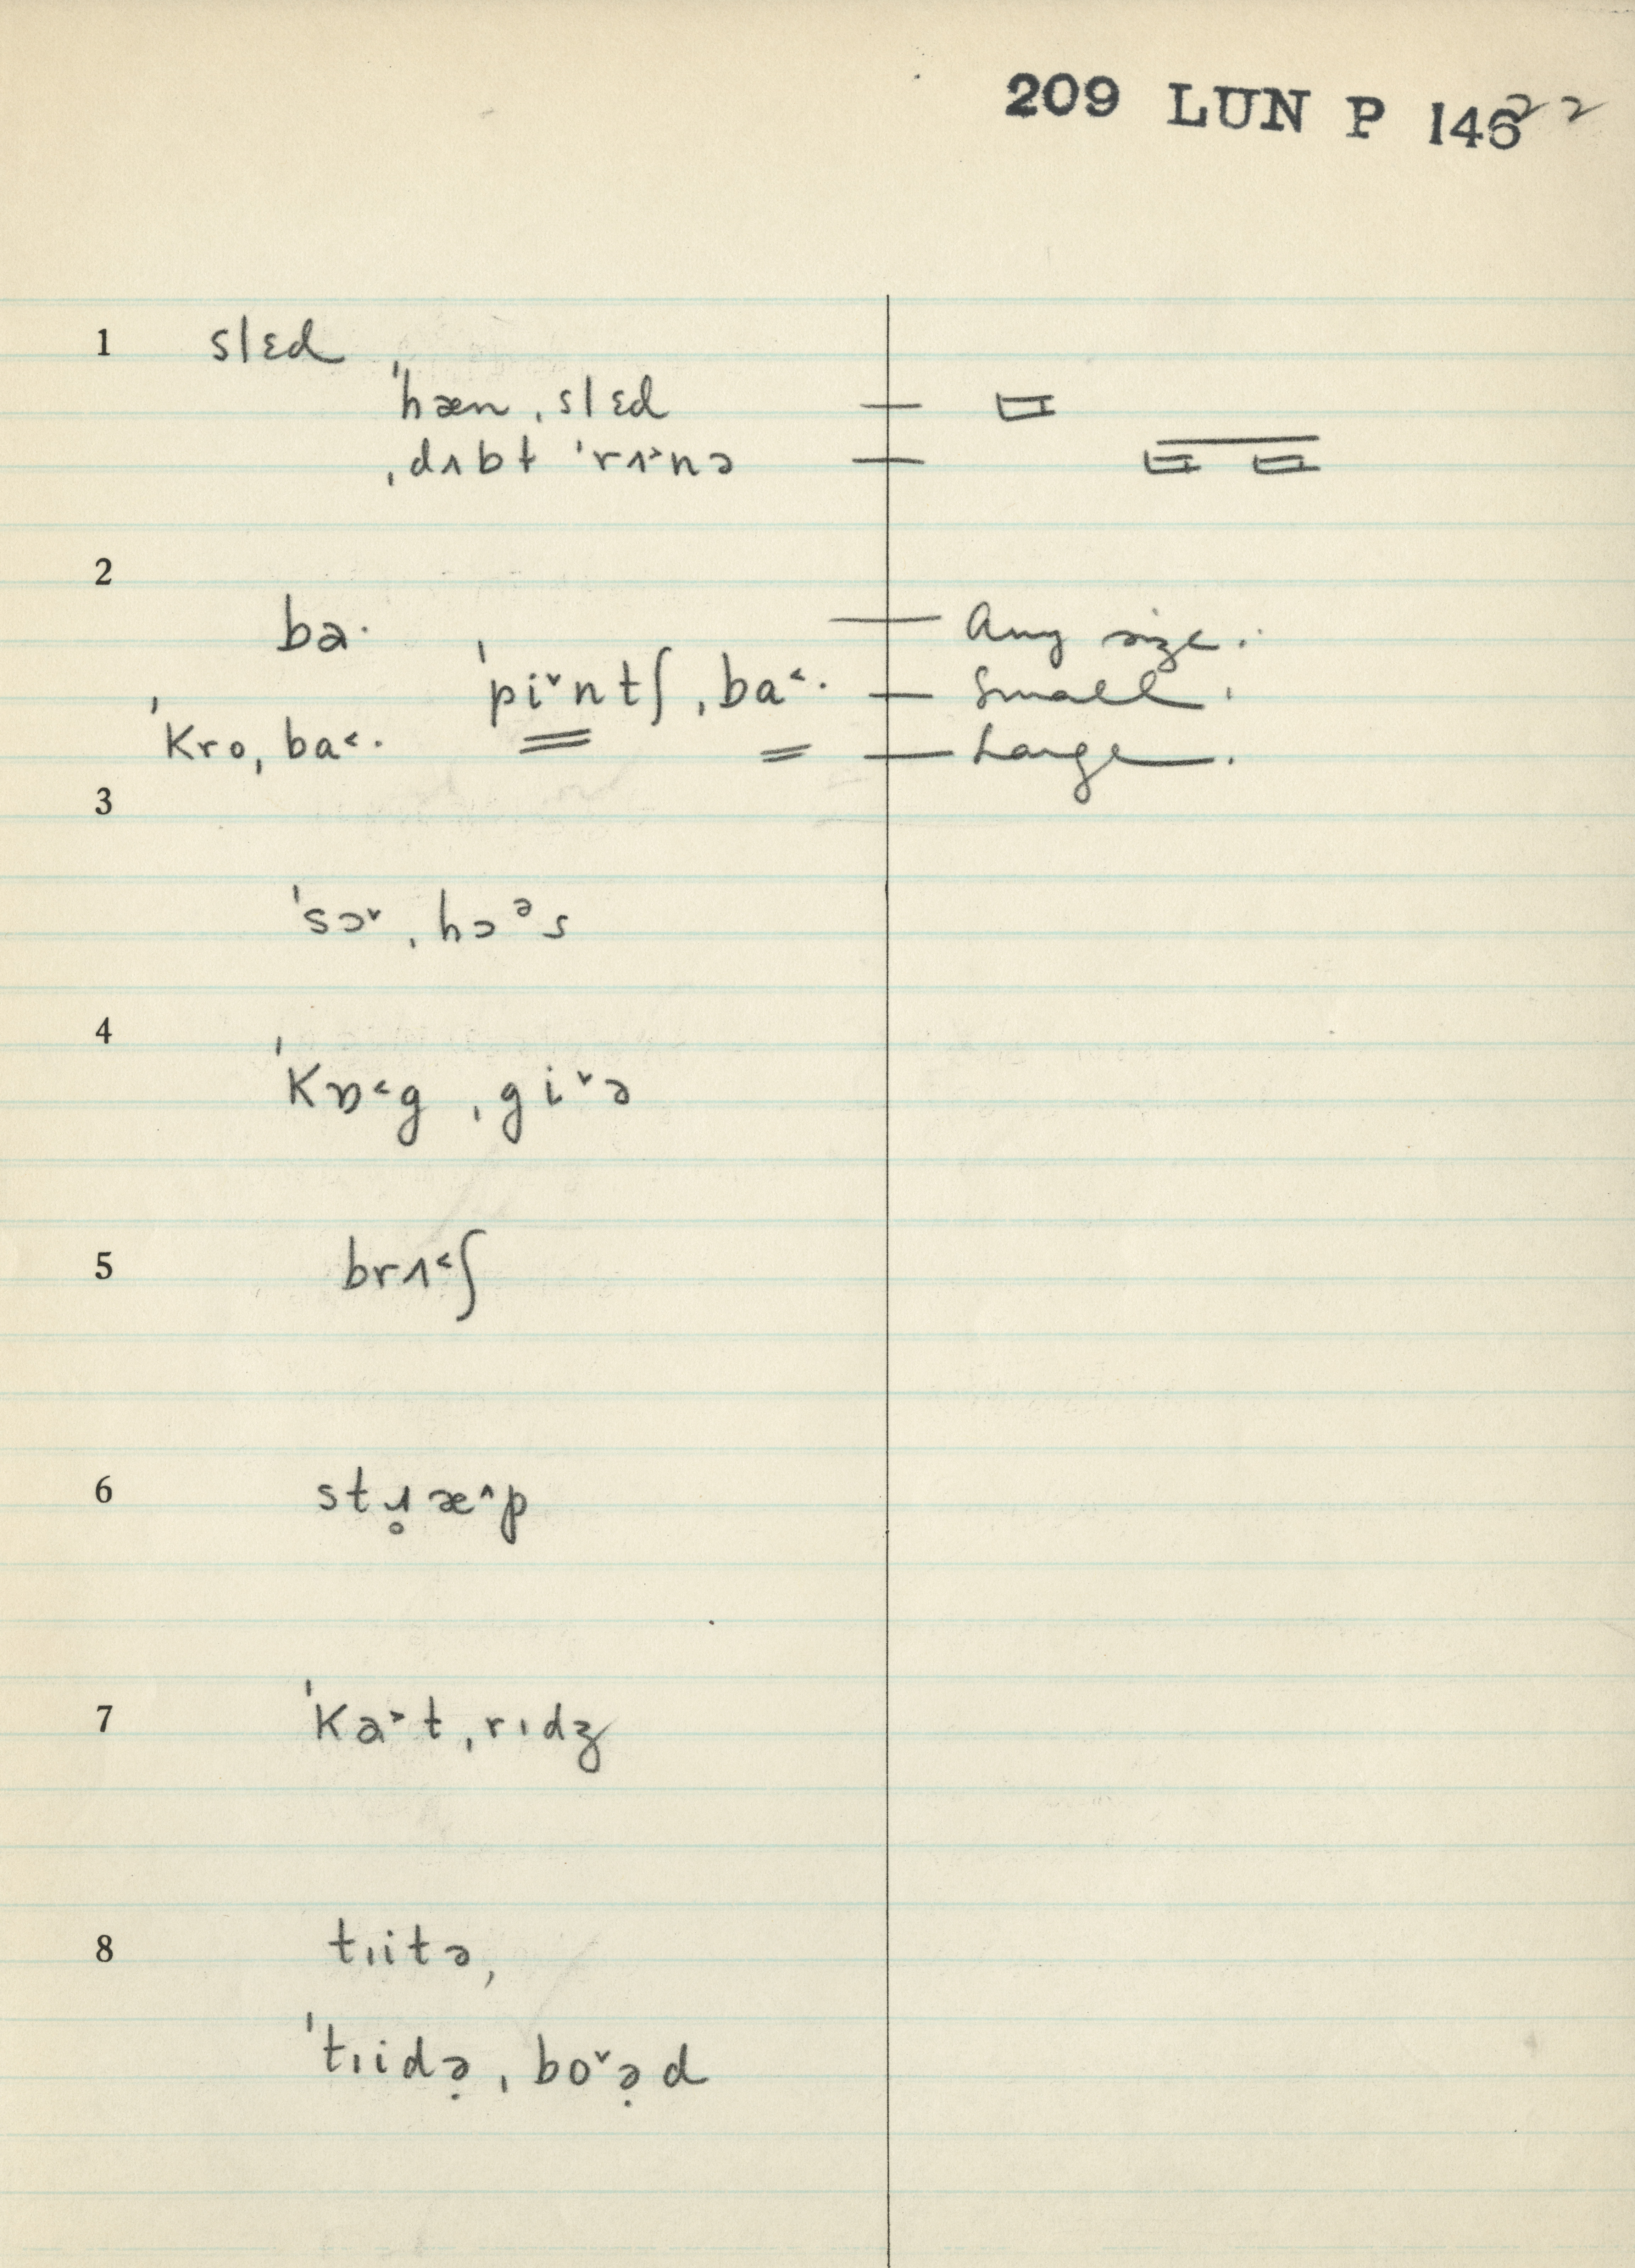 209 LUN P 146 22
1 slɛd
ˈhæn ˌslɛd
ˌdʌbt ˈrʌ˃nə
2
ba·  — Any size.
ˈpi˅ntʃ ˌba˂· — Small.
ˈkro ˌba˂· — Large.
3
ˈsɔ˅ ˌhɔᵊs
4
ˈkɒ˂g ˌgi˅ə
5 brʌ˂ʃ
6 stɹ̥æ˄p
7 ˈka˃t ˌrɪdʒ
8 tɹitə,
ˈtɹidə̣ ˌbo˅ə̣d